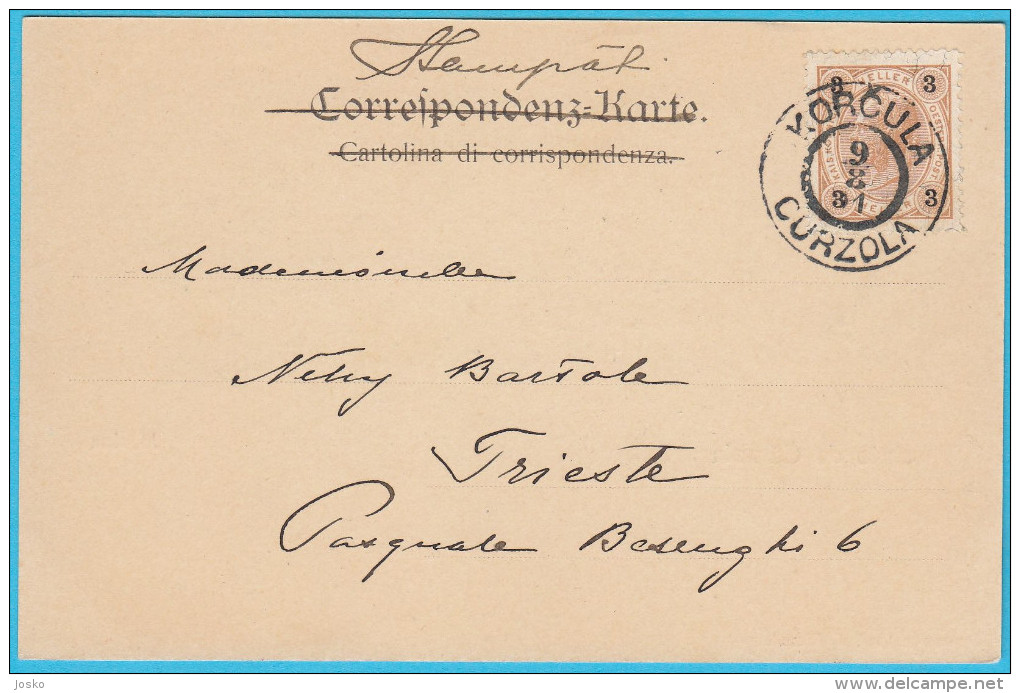 Stampát
Correspondenz-Karte.
Cartolina di corrispondenza.
3 HELLER 3
3 3
KORČULA
9
8
1
CURZOLA
Mademoiselle
Nelly Bartole
Trieste
Pasquale Besenghi 6
Josko
www.delcampe.net